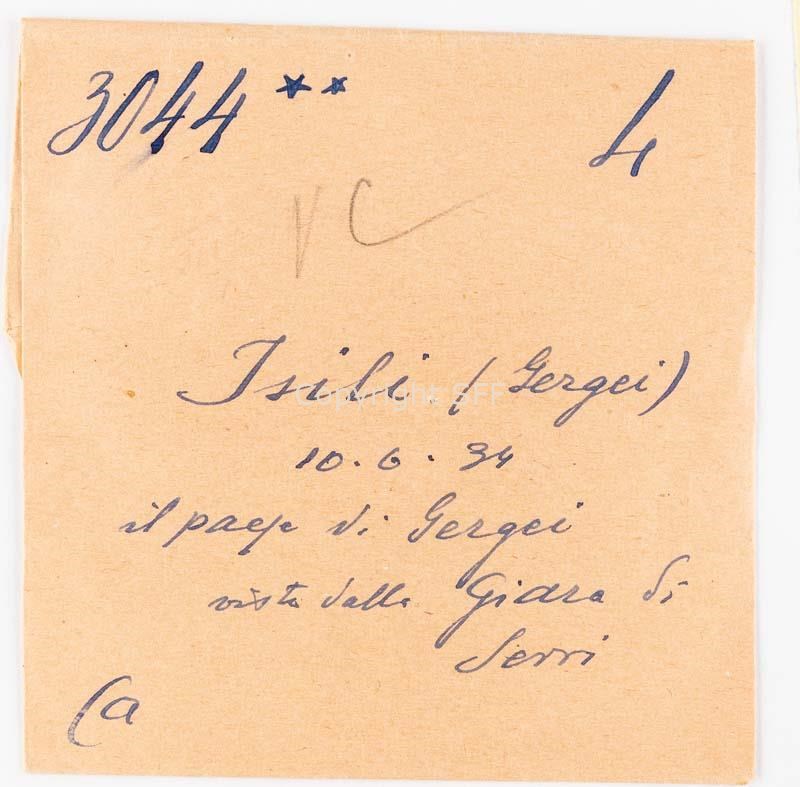 3044 ** L
VC
Isili. (Gergei)
Copyright SFF
10.6.34
il paese di Gergei
visto dalla Giara di
Serri
Ca